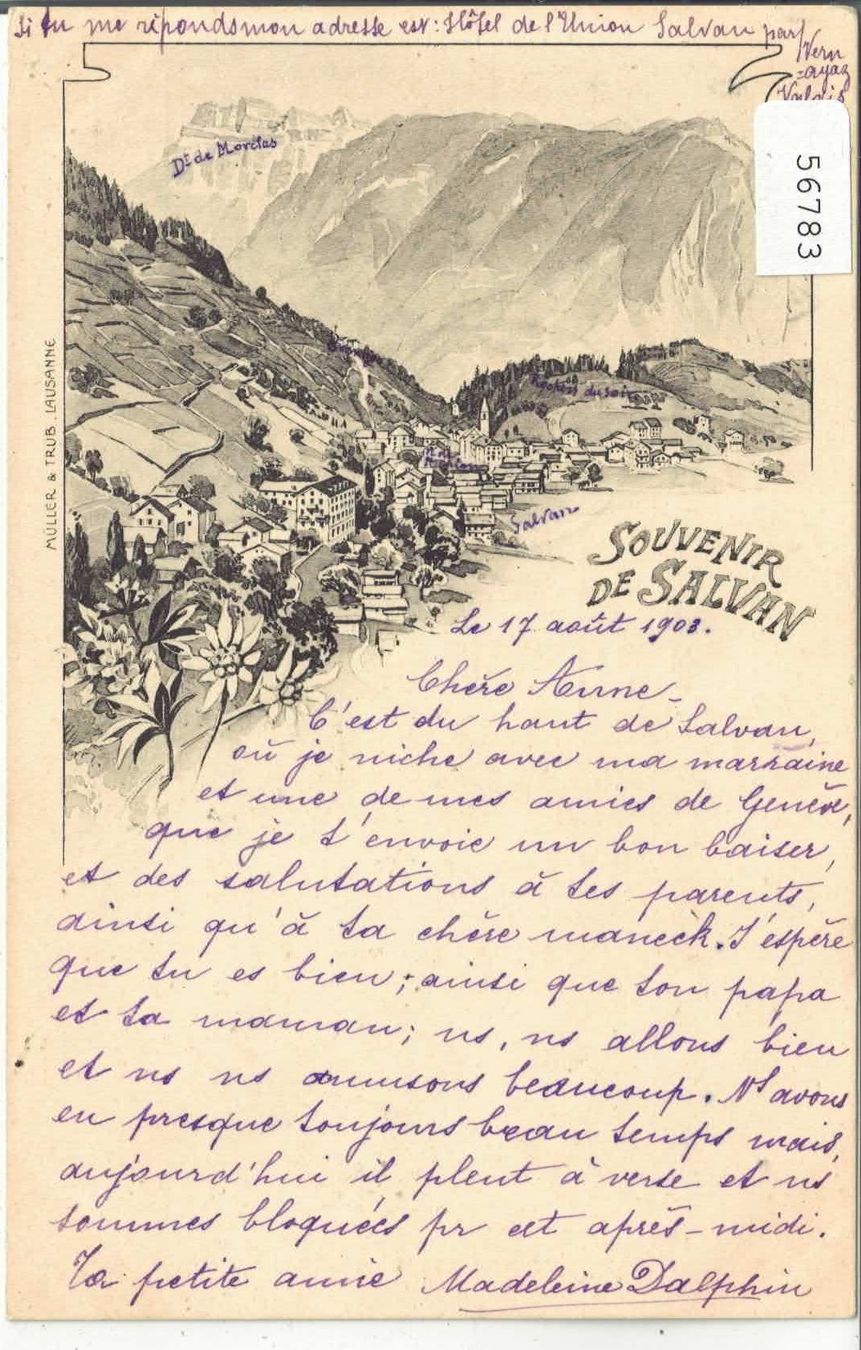 Si tu me réponds mon adresse est: Hôtel de l'Union Salvan par
Vern
=ayaz
Valais
56783
Dt de Morcles
MÜLLER & TRÜB. LAUSANNE
Rochers du soir
Salvan
SOUVENIR
DE SALVAN
Le 17 août 1903.
Chère Anne_
C'est du haut de Salvan,
où je niche avec ma marraine
et une de mes amies de Genève,
que je t'envoie un bon baiser,
et des salutations à tes parents,
ainsi qu'à ta chère maneck. J'espère
que tu es bien; ainsi que ton papa
et ta maman; ns, ns allons bien
et ns ns amusons beaucoup. Ns avons
eu presque toujours beau temps mais,
aujourd'hui il pleut à verse et ns
sommes bloquées pr cet après-midi.
Ta petite amie Madeleine Dalphin